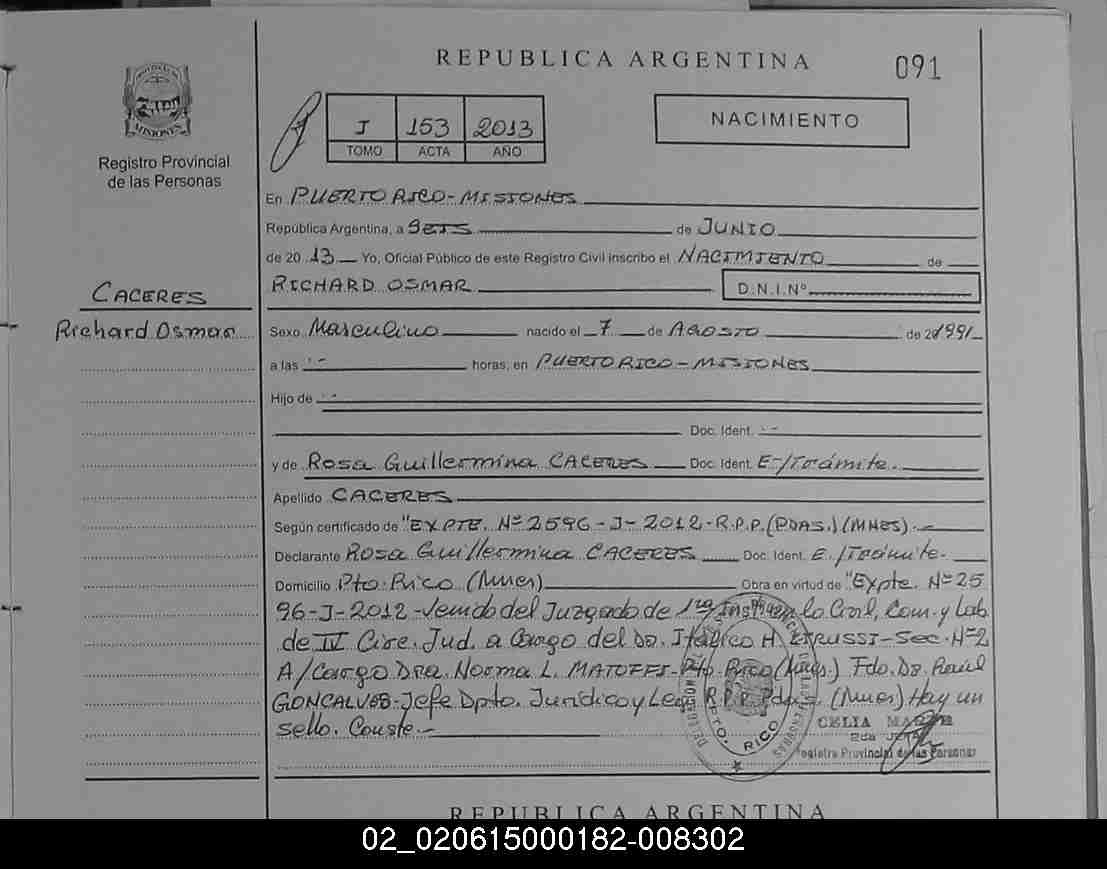 REPUBLICA ARGENTINA
091
PROVINCIA DE
MISIONES
Registro Provincial
de las Personas
J 153 2013
TOMO ACTA AÑO
NACIMIENTO
En PUERTO RICO - MISIONES
República Argentina, a SEIS de JUNIO
de 20 13 Yo, Oficial Público de este Registro Civil inscribo el NACIMIENTO de
RICHARD OSMAR D.N.I.Nº
CACERES
Richard Osmar
Sexo Masculino nacido el 7 de AGOSTO de 1991
a las horas, en PUERTO RICO - MISIONES
Hijo de
Doc. Ident.
y de Rosa Guillermina CACERES Doc. Ident. E-/Trámite.
Apellido CACERES
Según certificado de "EXPTE. Nº 2596-J-2012-R.P.P.(PDAS.)(MNES).-
Declarante Rosa Guillermina CACERES Doc. Ident. E./Trámite.
Domicilio Pto. Rico (Mnes) Obra en virtud de "Expte. Nº 25
96-J-2012-Venido del Juzgado de 1ra Inst. en lo Civil, Com. y Lab.
de IV Circ. Jud. a Cargo del Dr. Itálico H. ETRUSSI-Sec. Nº2
A/Cargo Dra. Norma L. MATOFFI-Pto. Rico (Mnes.) Fdo. Dr. Raúl
GONCALVES-Jefe Dpto. Jurídico y Leg. R.P.P. Pdas. (Mnes) Hay un
sello. Conste.-
PTO. RICO
CELIA
Registro Provincial de las Personas
REPUBLICA ARGENTINA
02_020615000182-008302